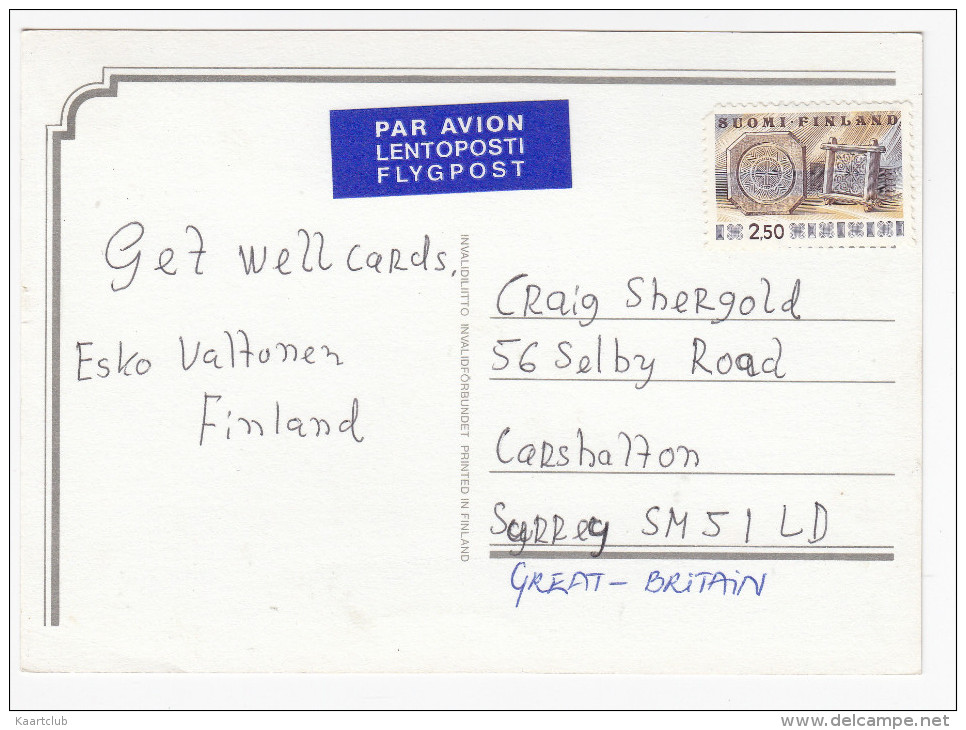 PAR AVION
LENTOPOSTI
FLYGPOST
SUOMI·FINLAND
2,50
Get well cards.
Esko Valtonen
Finland
INVALIDILIITTO INVALIDFÖRBUNDET PRINTED IN FINLAND
Craig Shergold
56 Selby Road
Carshalton
Surrey SM51LD
GREAT-BRITAIN
Kaartclub
www.delcampe.net